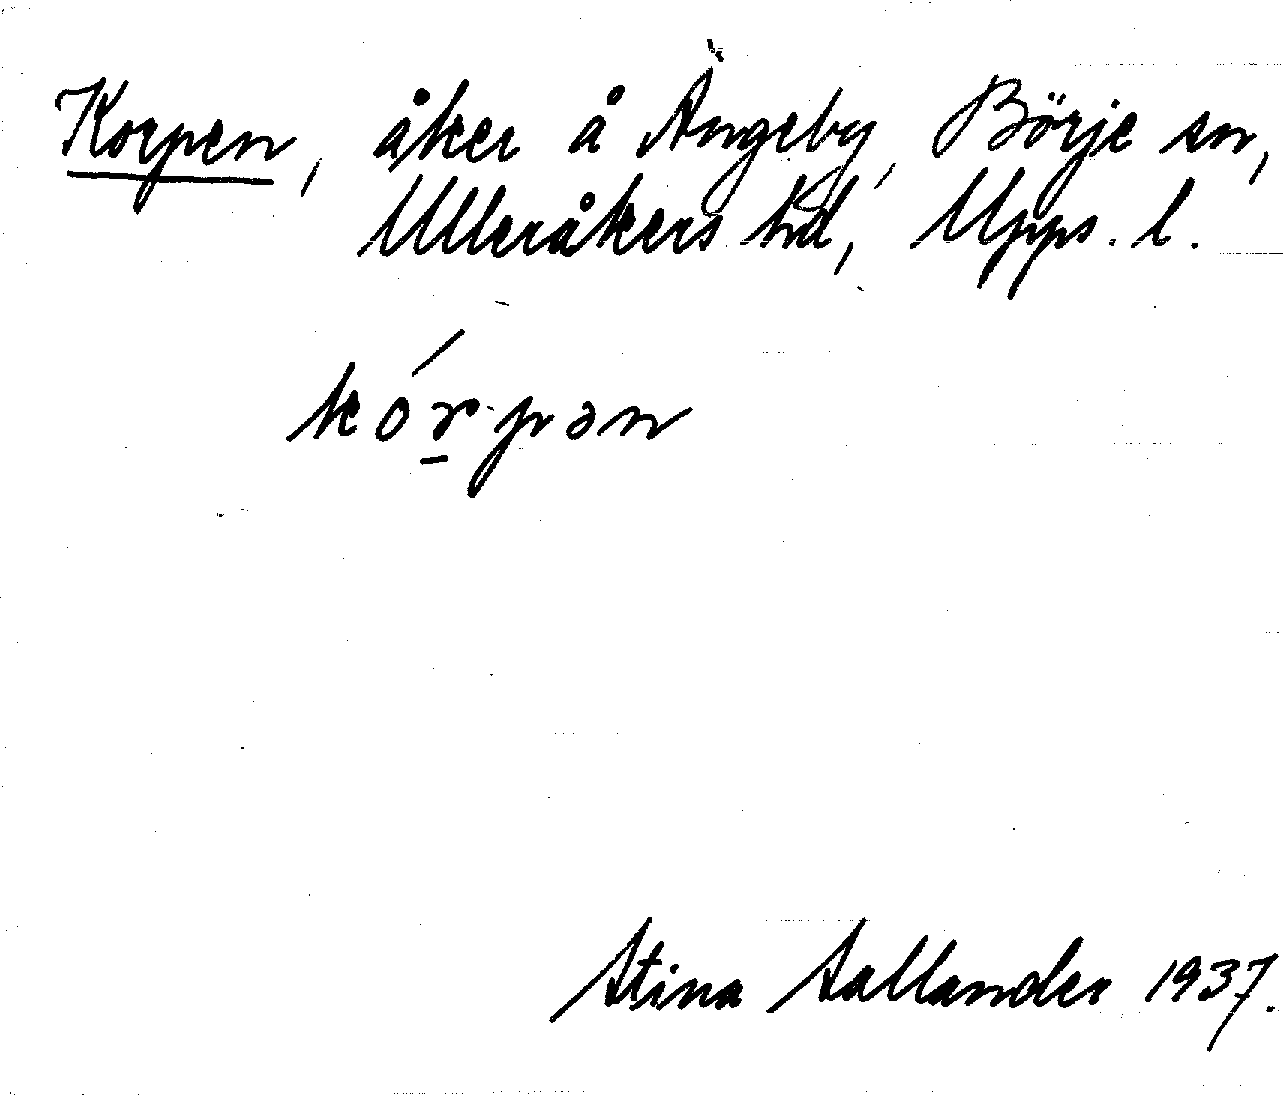 Korpen, åker å Ängeby, Börje sn,
Ulleråkers hd, Upps. l.
kórpən
Stina Sallander 1937.